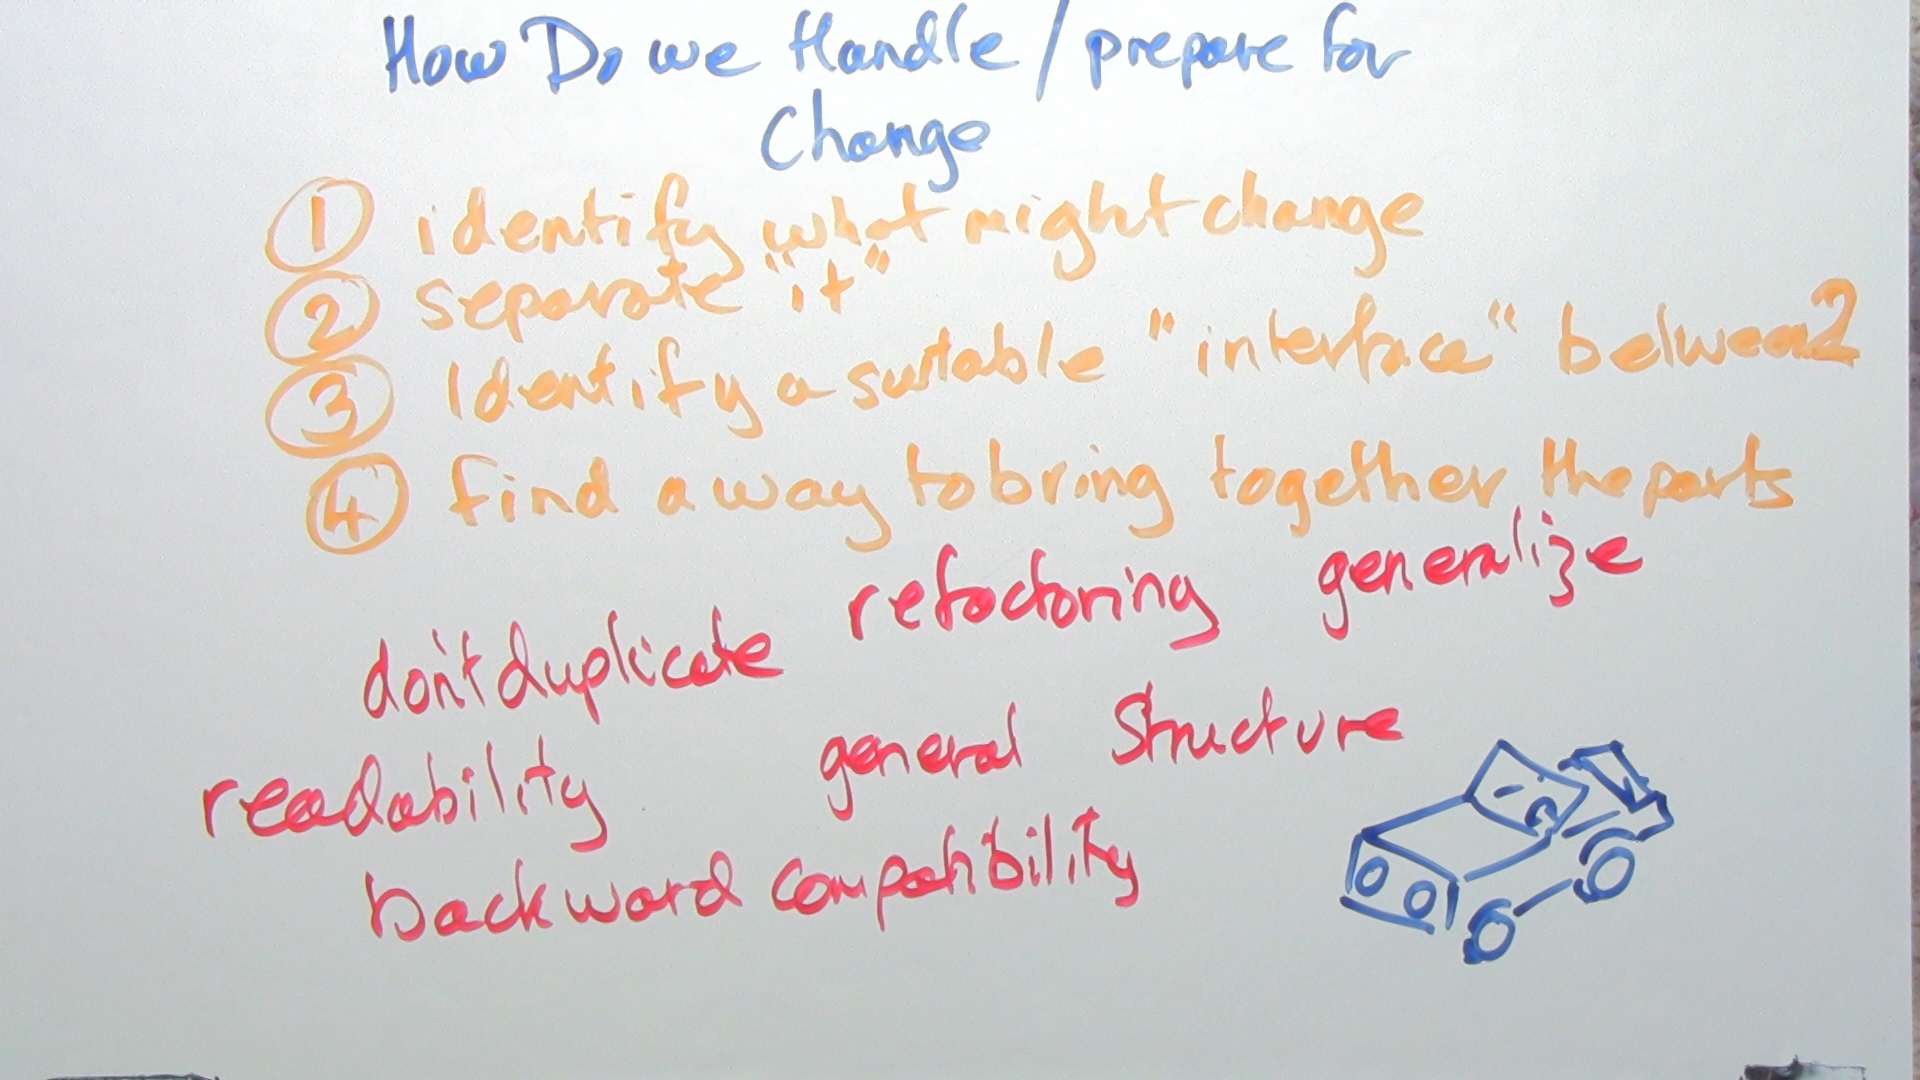 How Do we Handle / prepare for
Change
① identify what might change
② separate "it"
③ Identify a suitable "interface" between 2
④ find a way to bring together the parts
don't duplicate refactoring generalize
readability general structure
backward compatibility